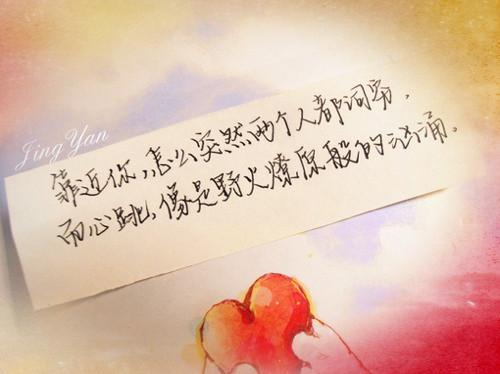 Jing Yan
靠近你,怎么突然两个人都词穷,
而心跳,像是野火燎原般的汹涌。